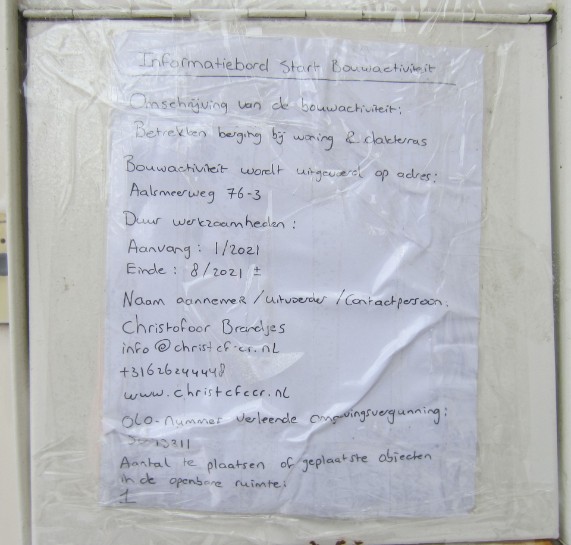 Informatiebord Start Bouwactiviteit
Omschrijving van de bouwactiviteit:
Betrekken berging bij woning & dakterras
Bouwactiviteit wordt uitgevoerd op adres:
Aalsmeerweg 76-3
Duur werkzaamheden:
Aanvang: 1/2021
Einde: 8/2021 ±
Naam aannemer/uitvoerder/Contactpersoon:
Christofoor Brandjes
+31626244448
OLO-nummer verleende omgvingsvergunning:
Aantal te plaatsen of geplaatste objecten
in de openbare ruimte:
1